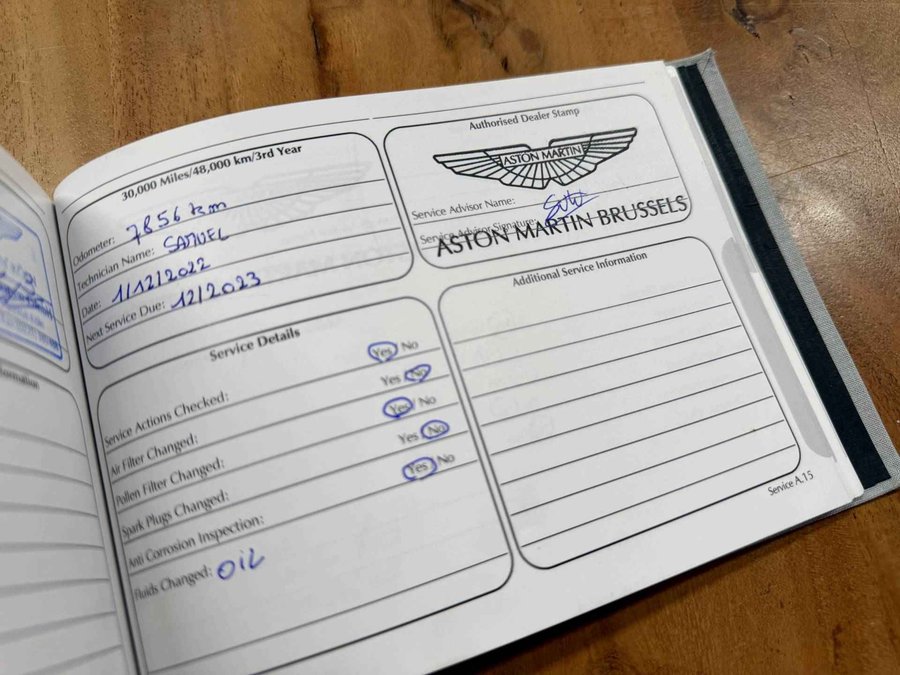 30,000 Miles/48,000 km/3rd Year
Odometer: 7856 km
Technician Name: SAMUEL
Date: 1/12/2022
Next Service Due: 12/2023
Authorised Dealer Stamp
ASTON MARTIN
Service Advisor Name:
Service Advisor Signature:
ASTON MARTIN BRUSSELS
Service Details
Service Actions Checked: Yes/No
Air Filter Changed: Yes/No
Pollen Filter Changed: Yes/No
Spark Plugs Changed: Yes/No
Anti Corrosion Inspection: Yes/No
Fluids Changed: OIL
Additional Service Information
Service A.15